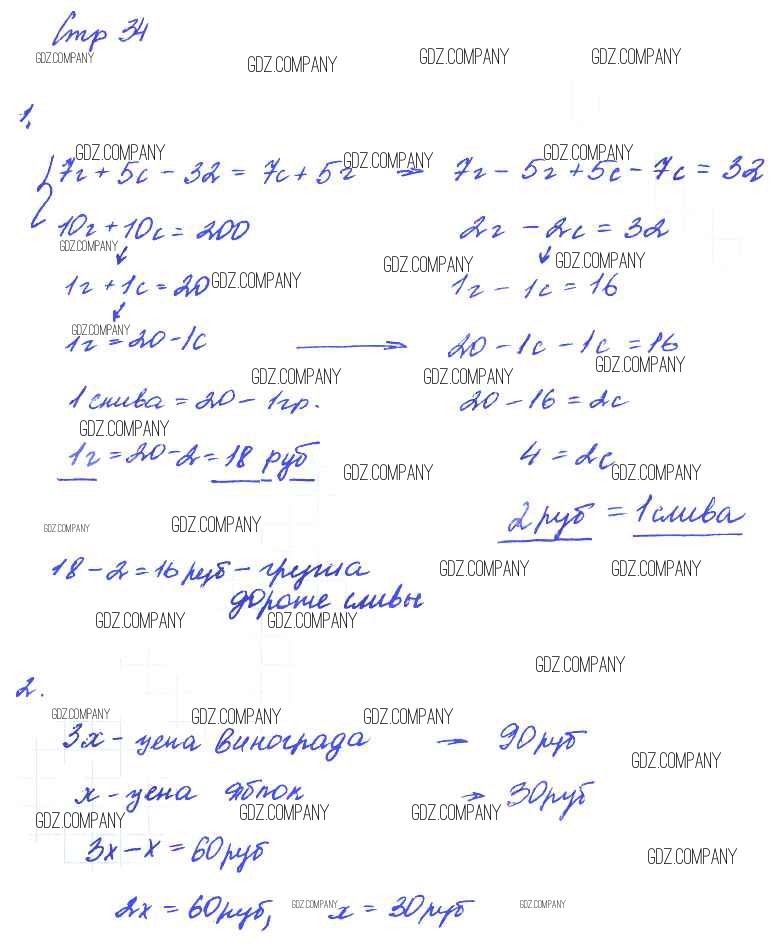 Стр 34
GDZ.COMPANY GDZ.COMPANY GDZ.COMPANY GDZ.COMPANY
1.
GDZ.COMPANY GDZ.COMPANY GDZ.COMPANY
7г + 5с - 32 = 7с + 5г → 7г - 5г + 5с - 7с = 32
10г + 10с = 200 2г - 2с = 32
GDZ.COMPANY GDZ.COMPANY GDZ.COMPANY
1г + 1с = 20 GDZ.COMPANY 1г - 1с = 16
GDZ.COMPANY
1г = 20 - 1с → 20 - 1с - 1с = 16
GDZ.COMPANY GDZ.COMPANY GDZ.COMPANY
1 слива = 20 - 1гр. 20 - 16 = 2с
GDZ.COMPANY
1г = 20 - 2 = 18 руб 4 = 2с
GDZ.COMPANY GDZ.COMPANY
2 руб = 1 слива
GDZ.COMPANY GDZ.COMPANY
18 - 2 = 16 руб - груша
GDZ.COMPANY GDZ.COMPANY
дороже сливы
GDZ.COMPANY GDZ.COMPANY
GDZ.COMPANY
2.
GDZ.COMPANY GDZ.COMPANY GDZ.COMPANY
3х - цена винограда → 90 руб
GDZ.COMPANY
х - цена яблок → 30 руб
GDZ.COMPANY GDZ.COMPANY GDZ.COMPANY
3х - х = 60 руб
GDZ.COMPANY
2х = 60 руб, GDZ.COMPANY х = 30 руб GDZ.COMPANY